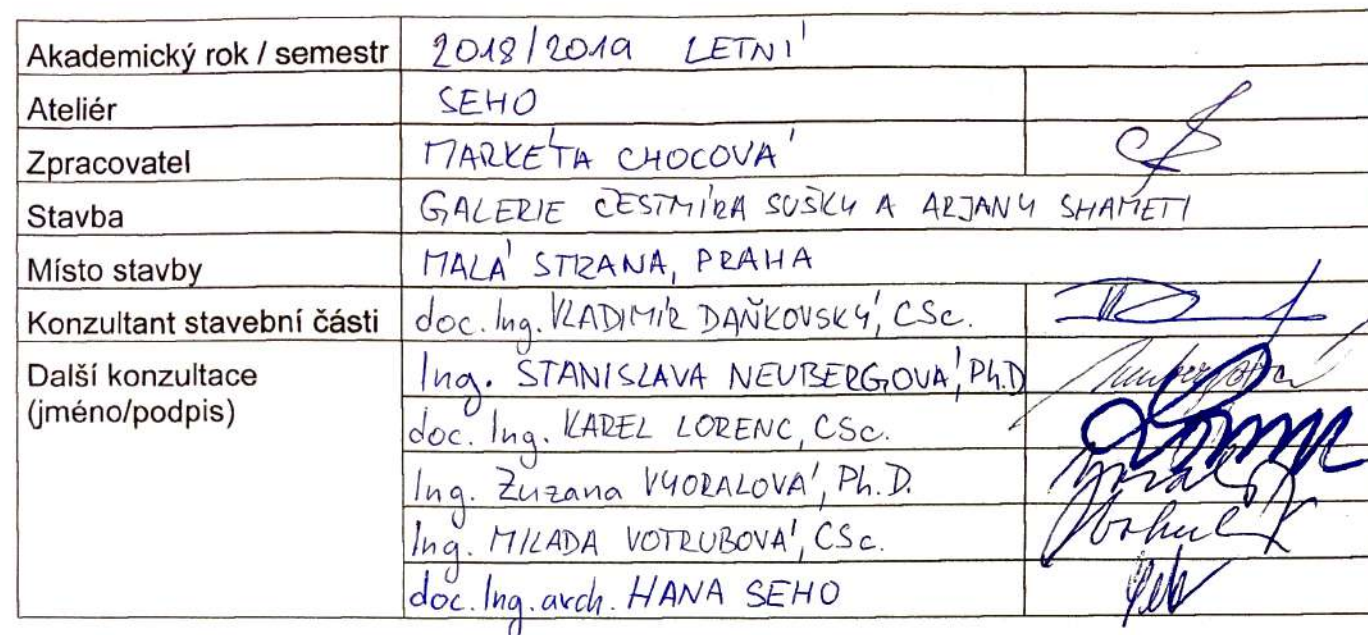 Akademický rok / semestr 2018/2019 LETNÍ
Ateliér SEHO
Zpracovatel MARKÉTA CHOCOVÁ
Stavba GALERIE ČESTMÍRA SUŠKY A ARJANY SHAMETI
Místo stavby MALÁ STRANA, PRAHA
Konzultant stavební části doc. Ing. VLADIMÍR DAŇKOVSKÝ, CSc.
Další konzultace Ing. STANISLAVA NEUBERGOVÁ, Ph.D
(jméno/podpis) doc. Ing. KAREL LORENC, CSc.
Ing. Zuzana VYORALOVÁ, Ph.D.
Ing. MILADA VOTRUBOVÁ, CSc.
doc. Ing. arch. HANA SEHO